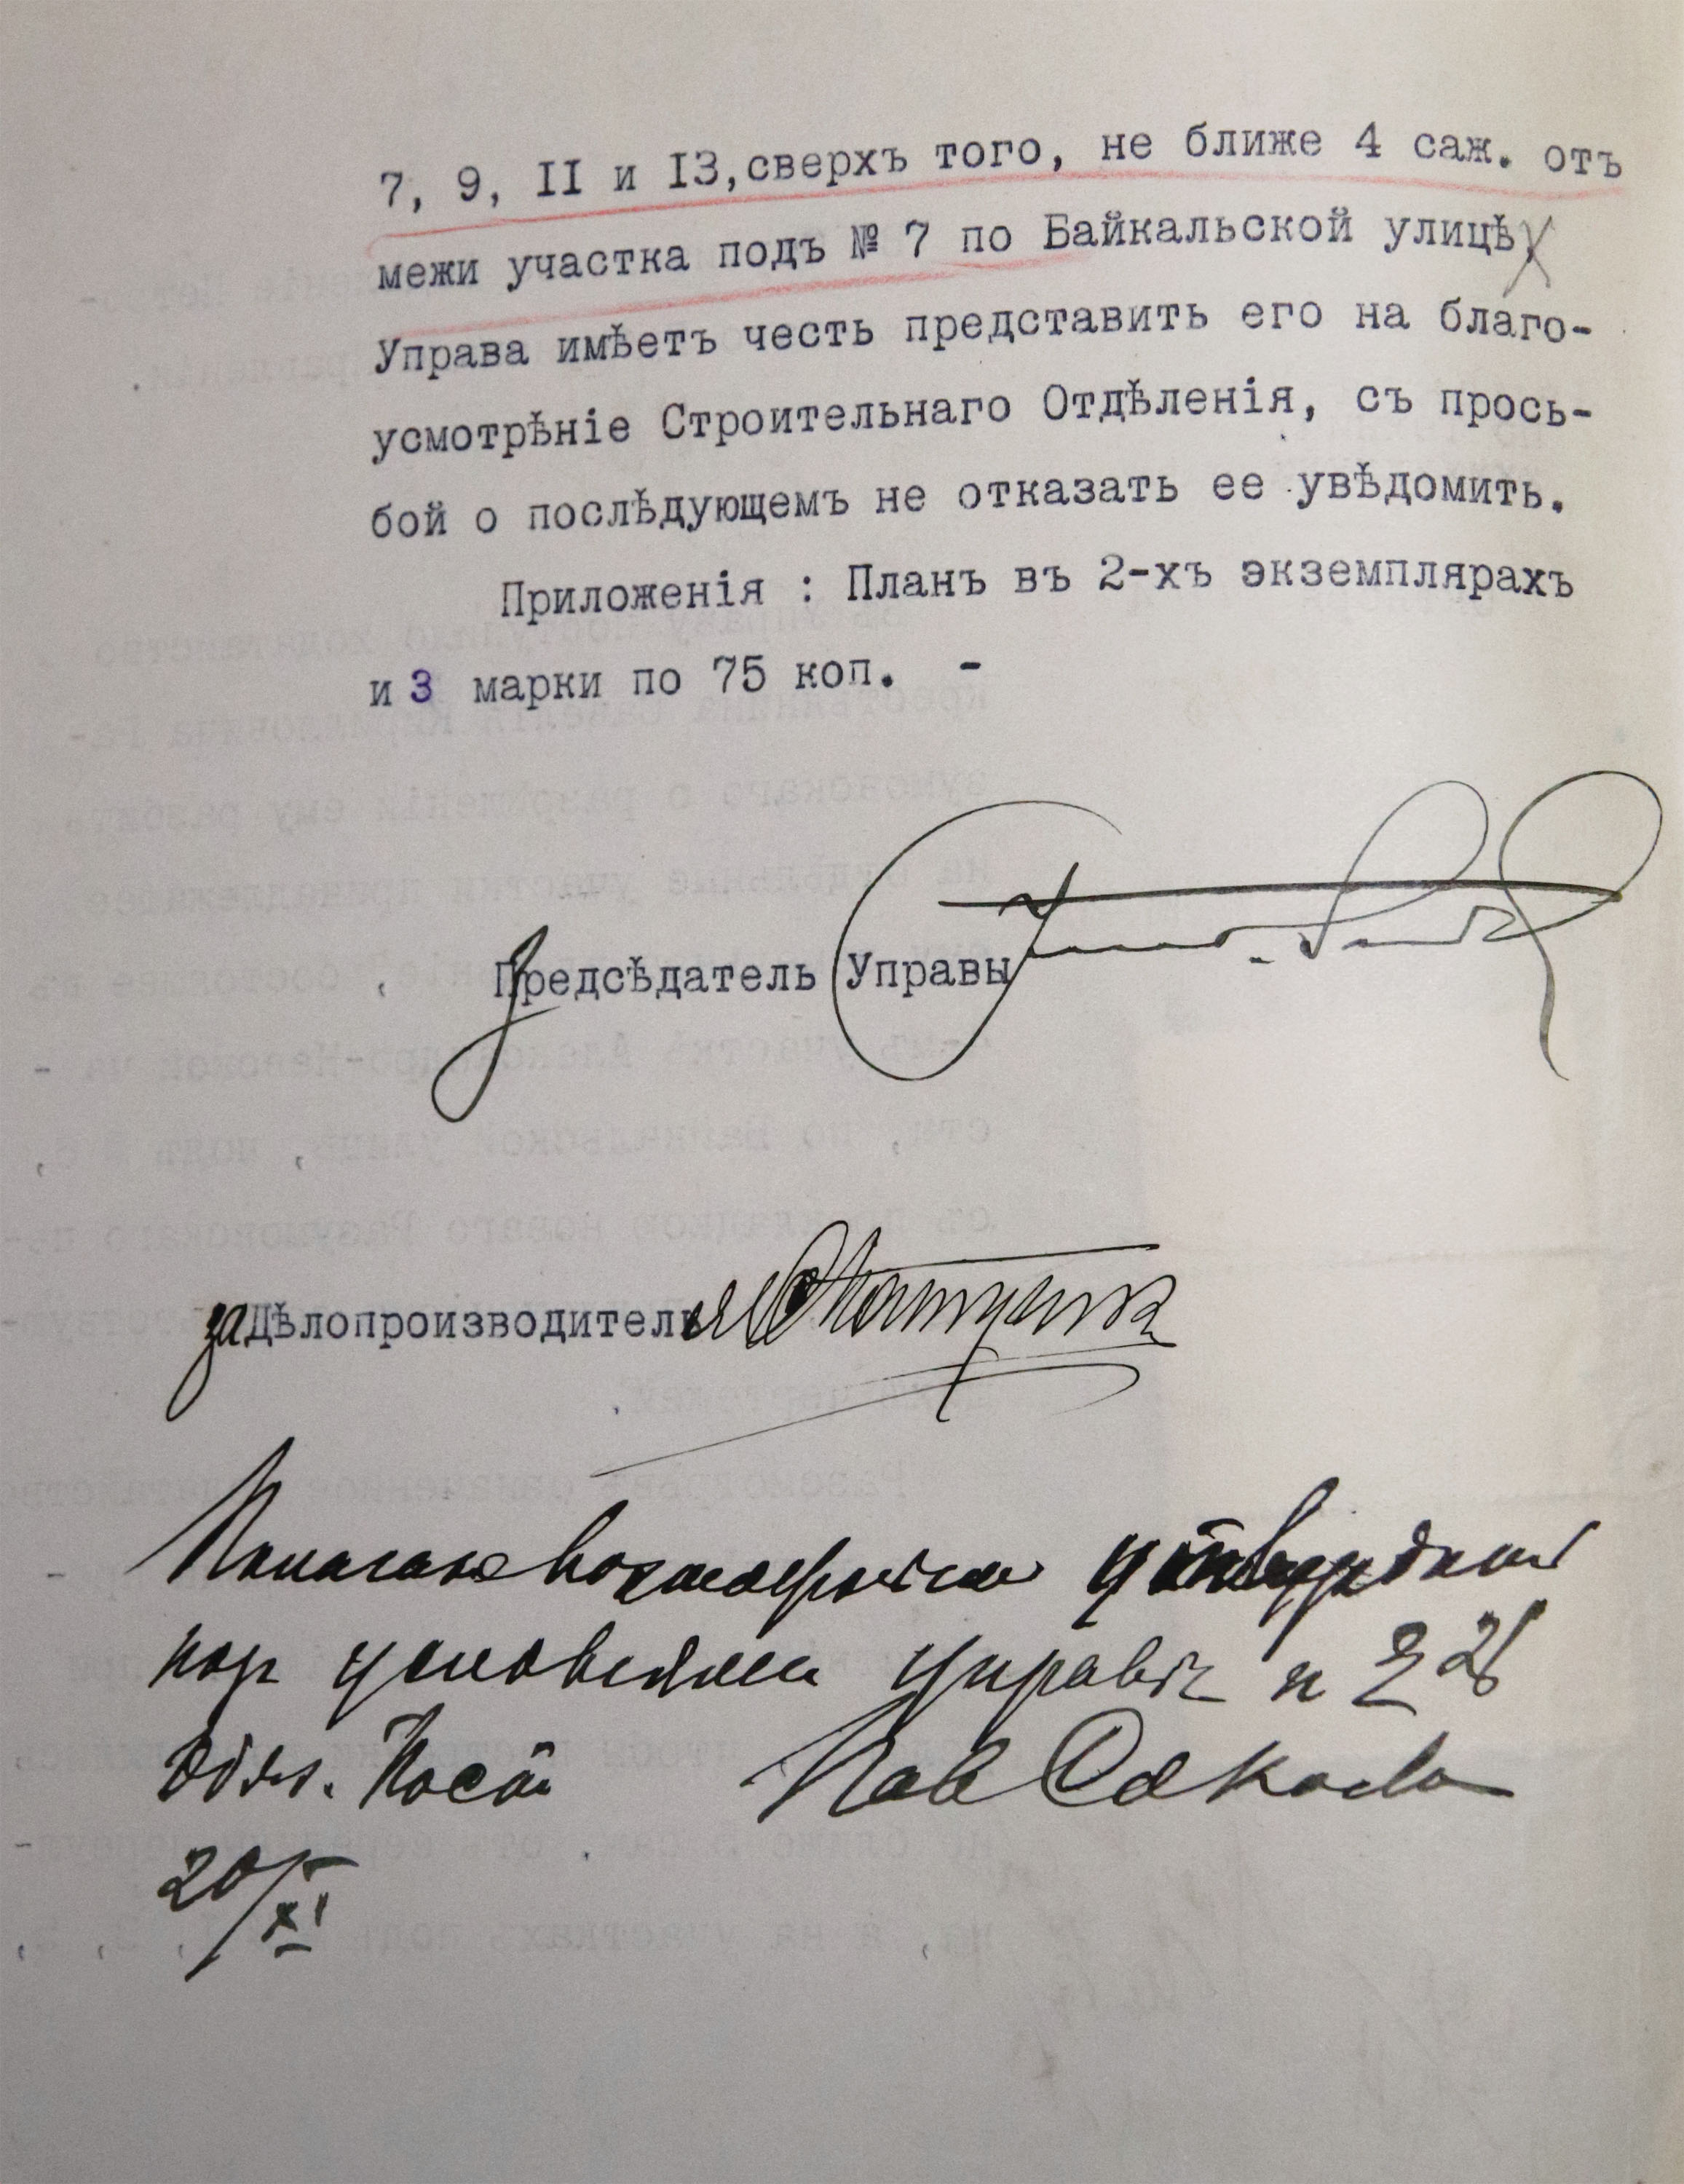 7, 9, II и I3, сверхъ того, не ближе 4 саж. отъ
межи участка подъ № 7 по Байкальской улицѣ,
Управа имѣетъ честь представить его на благо-
усмотрѣніе Строительнаго Отдѣленія, съ прось-
бой о послѣдующемъ не отказать ее увѣдомить.
Приложенія : План​ъ въ 2-хъ экземплярахъ
и 3 марки по 75 коп. -
Предсѣдатель Управы
за Дѣлопроизводителя
Полагаю возможнымъ утвердить
при условіяхъ управы и
20/XI